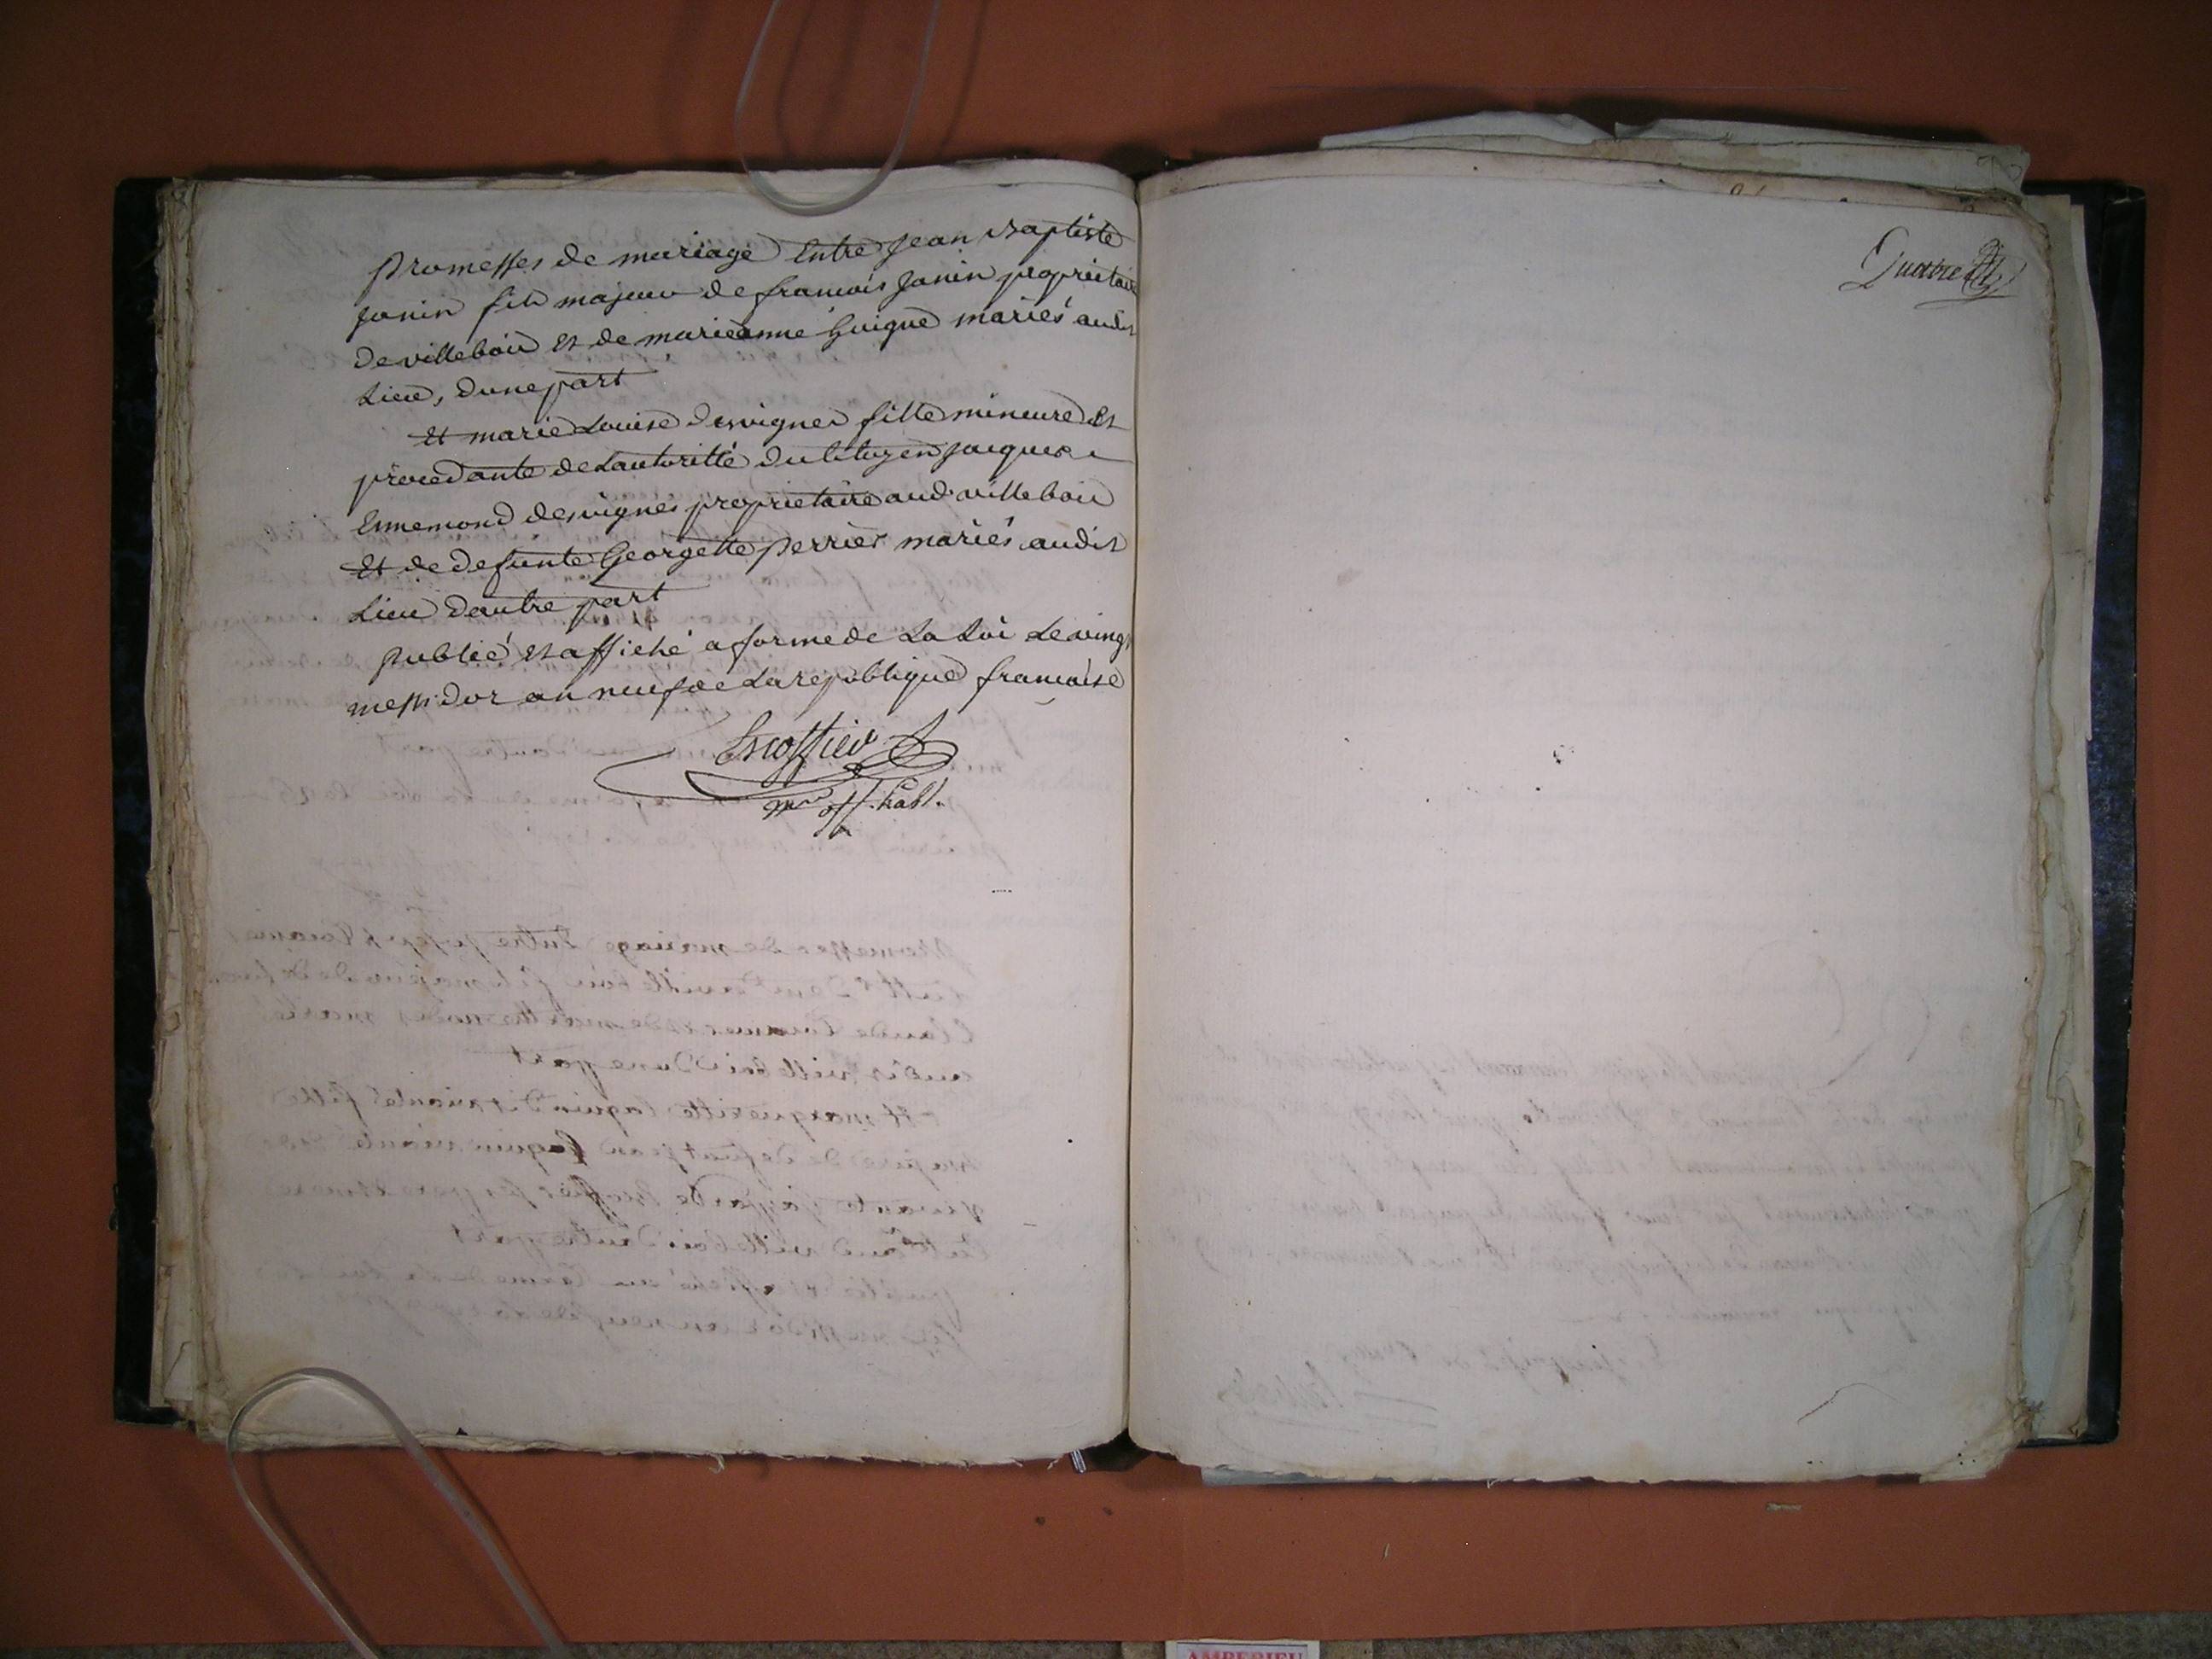 promesses de mariage Entre Jean Baptiste
Janin fils majeur de francois Janin proprietaire
de villebois et de marieanne Guigue mariés audit
Lieu, dune part
Et marie Louise desvignes fille mineure et
procedante de Lautoritté du Citoyen jacques
Ennemond desvignes proprietaire aud. villebois
Et de defunte Georgette perrier mariés audit
Lieu dautre part
publié et affiché a forme de La Loi Le vingt
messidor an neuf de La republique francaise
Escoffier
off.
Quatre
AMBERIEU